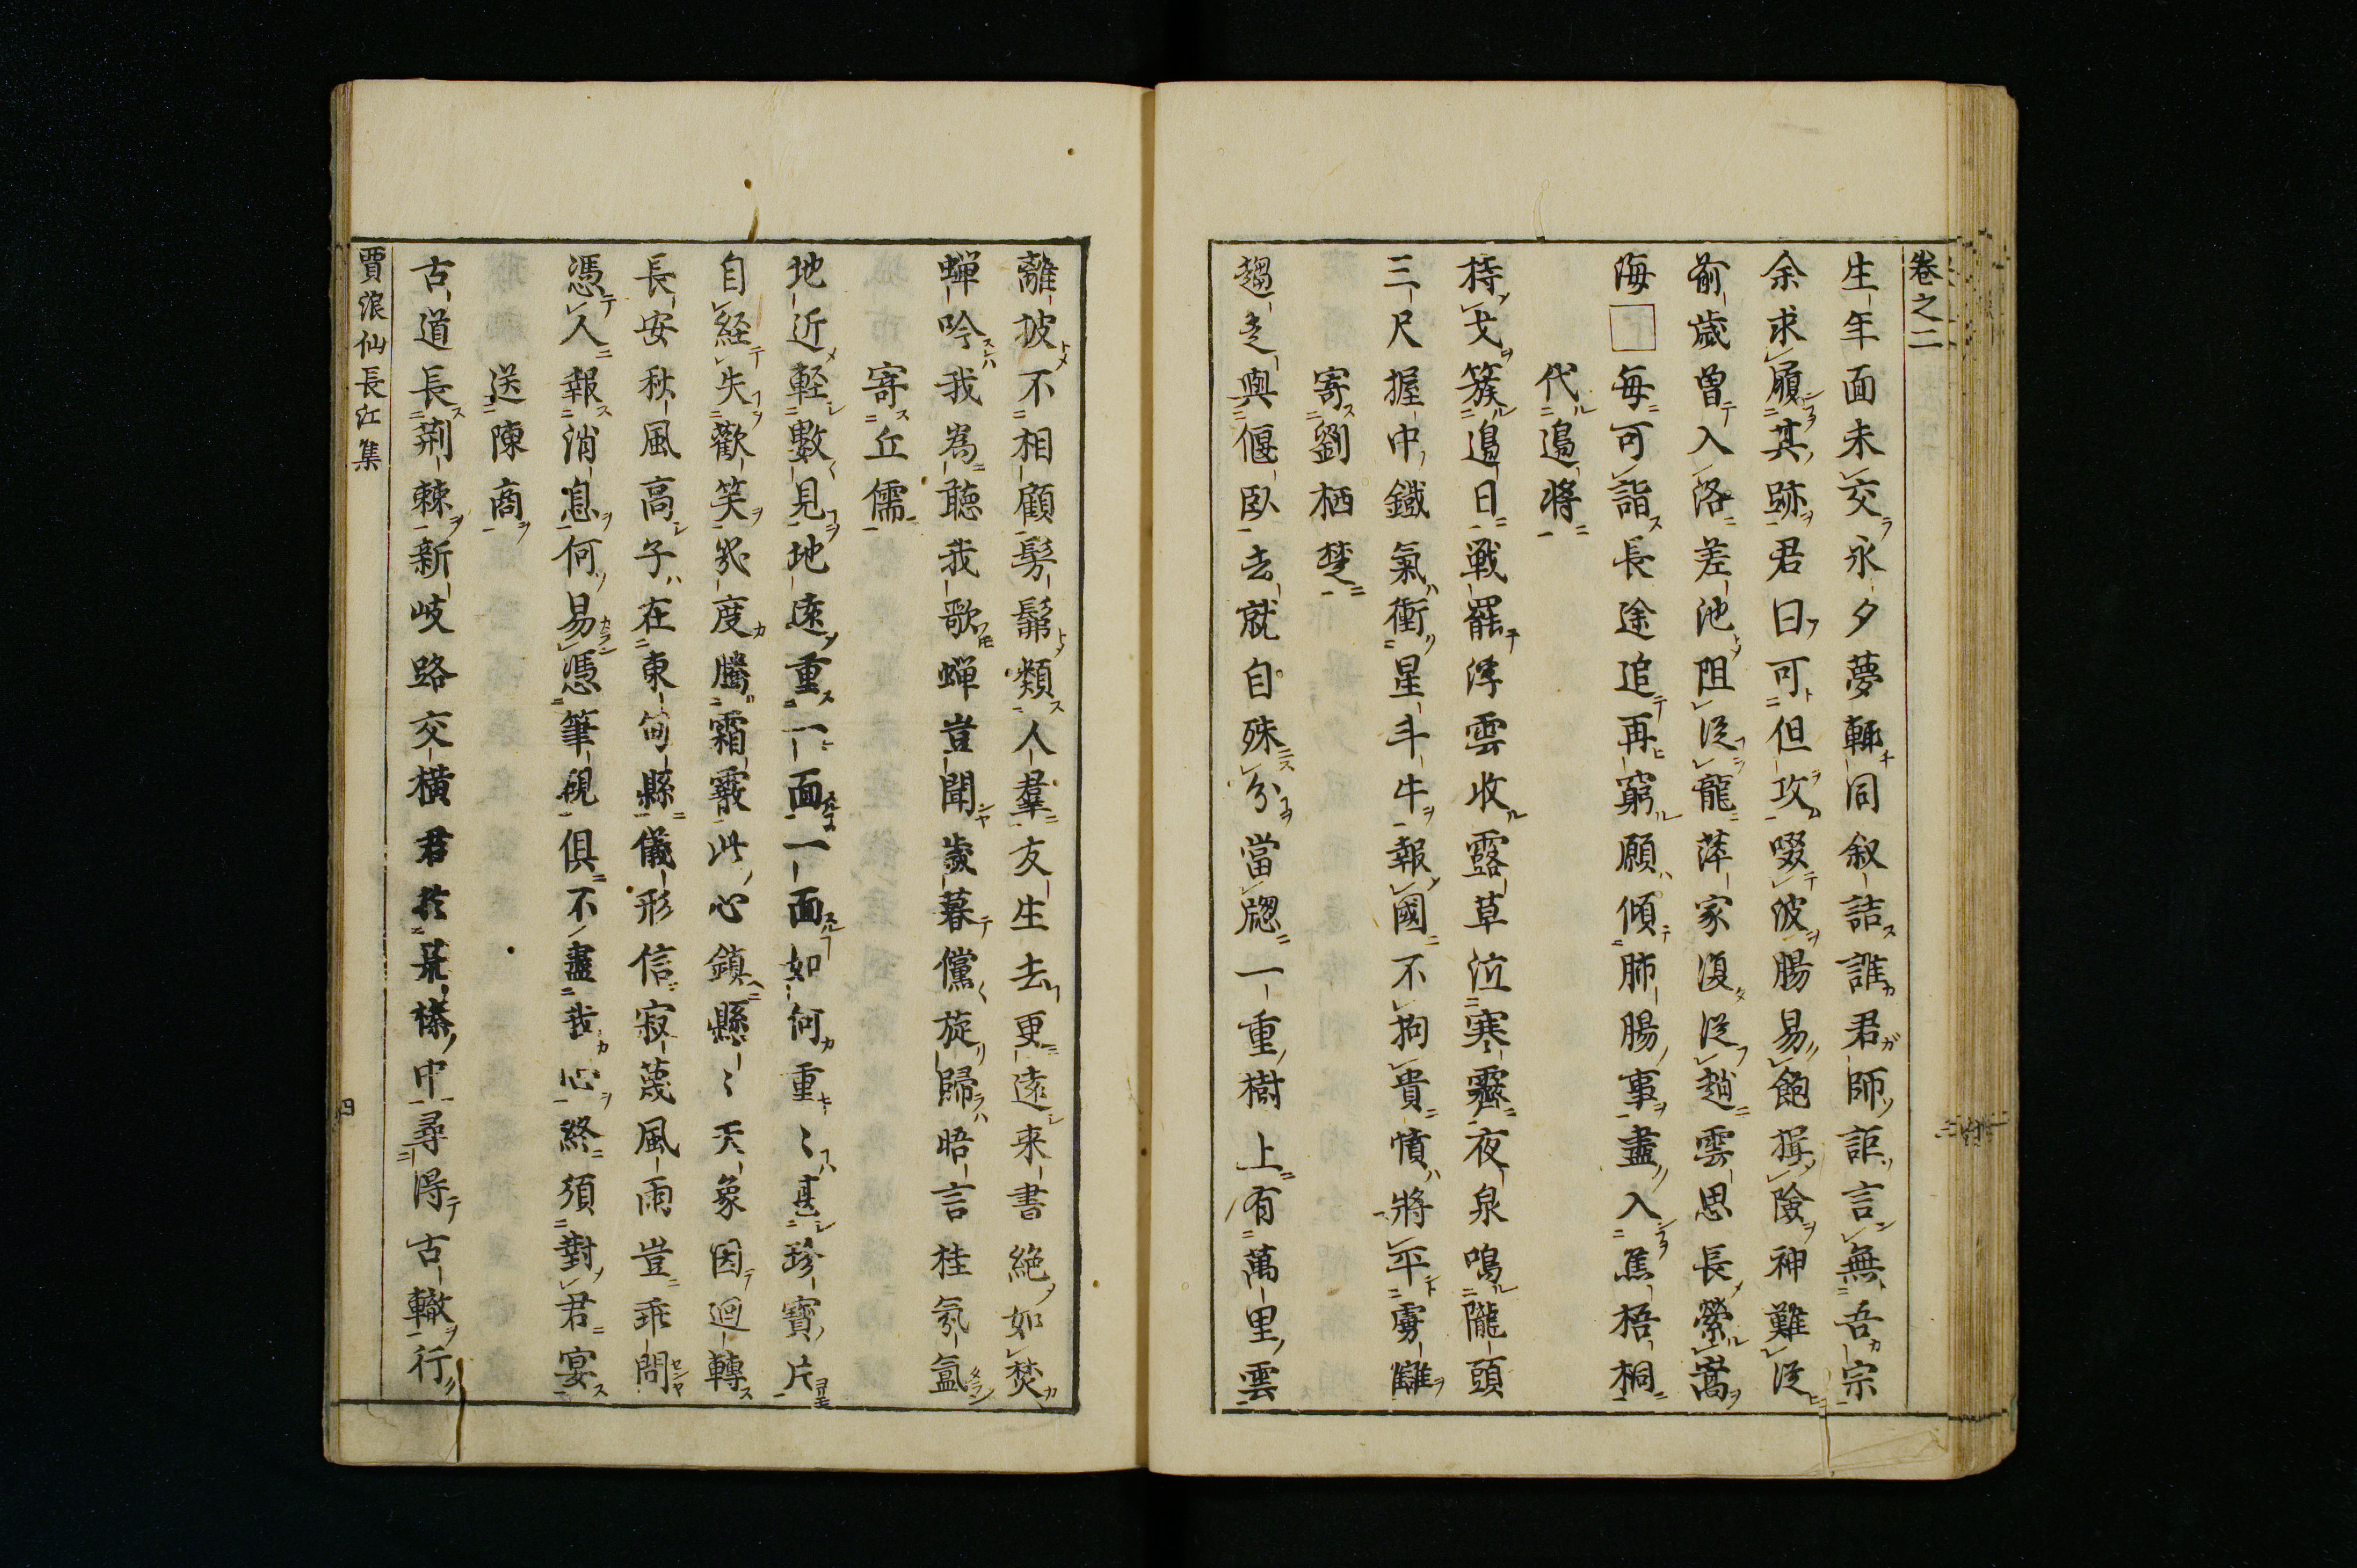 卷之二
生年面未交永夕夢輙同叙詰誰君師詎言無吾宗
余求履其跡君曰可但攻啜波腸易飽揖險神難從
前歳曽入洛差池阻從龍萍家復從趙雲思長縈嵩
海□毎可詣長途追再窮願傾肺腸事盡入焦梧桐
代邉將
持戈簇邉日戦罷浮雲收露草泣寒霽夜泉鳴隴頭
三尺握中鐡氣衝星斗牛報國不拘貴憤將平虜讎
寄劉栖楚
趨走與偃臥去就自殊分當牕一重樹上有萬里雲
離披不相顧髣髴類人羣友生去更遠来書絶如焚
蝉吟我為聴我歌蝉豈聞歲暮儻旋歸晤言桂氛氲
寄丘儒
地近輕數見地遠重一面一面如何重〻甚珍寶片
自経失歡笑㡬度騰霜霰此心鎮懸〻天象因迴轉
長安秋風高子在東甸縣儀形信寂蔑風雨豈乖間
憑人報消息何易憑筆硯俱不盡我心終須對君宴
送陳商
古道長荊棘新岐路交橫君於荒榛中尋得古轍行
賈浪仙長江集
四